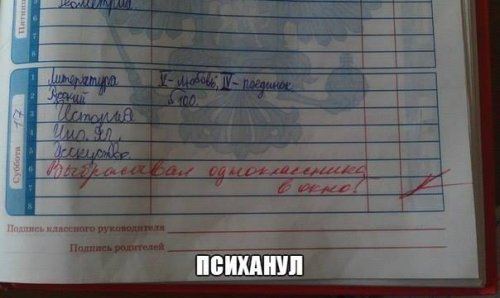 Пятница
Геометрия
8
Суббота 17
1 Литература V - любовь, IV - поединок
2 Русский §100
3 История
4 Ино. яз.
5 Искусство
6 Выбрасывал одноклассника
7 в окно!
8
Подпись классного руководителя
Подпись родителей
ПСИХАНУЛ